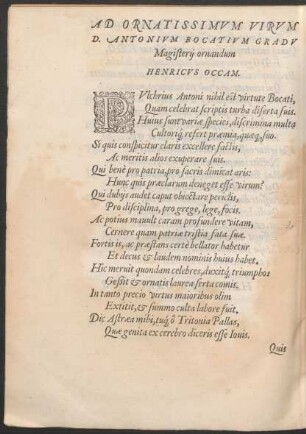 AD ORNATISSIMVM VIRVM
D. ANTONIVM BOCATIVM GRADV
Magisterij ornandum
HENRICVS OCCAM.
PVlchrius Antoni nihil est virtute Bocati,
Quam celebrat scriptis turba diserta suis.
Huius sunt variæ species, discrimina multa
Cultoriq́. refert præmia, quæq, suo.
Si quis conspicitur claris excellere factis,
Ac meritis alios exuperare suis.
Qui benè pro patria, pro sacris dimicat aris:
Hunc quis præclarum deneget esse virum?
Qui dubijs audet caput obiectare periclis,
Pro disciplina, pro grege, lege, focis.
Ac potius mauult caram profundere vitam,
Cernere quam patriæ tristia fata suæ.
Fortis is, ac præstans certè bellator habetur
Et decus & laudem nominis huius habet.
Hic meruit quondam celebres, duxitq́; triumphos
Gessit & ornatis laurea serta comis.
In tanto precio virtus maioribus olim
Extitit, & summo culta labore fuit.
Dic Astræa mihi, tuq́; ô Tritonia Pallas,
Quæ genita ex cerebro diceris esse Iouis.
Quis